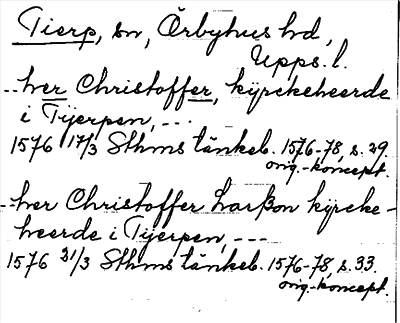 Tierp, sn, Örbyhus hd,
Upps. l.
--her Christoffer, kyrckeheerde
i Tijerpen, ---
1576 17/3 Sthms tänkeb. 1576-78, s. 29.
orig.-koncept.
--her Christoffer Larßon kyrcke-
heerde i Tijerpen, ---
1576 21/3 Sthms tänkeb. 1576-78, s. 33.
orig.-koncept.